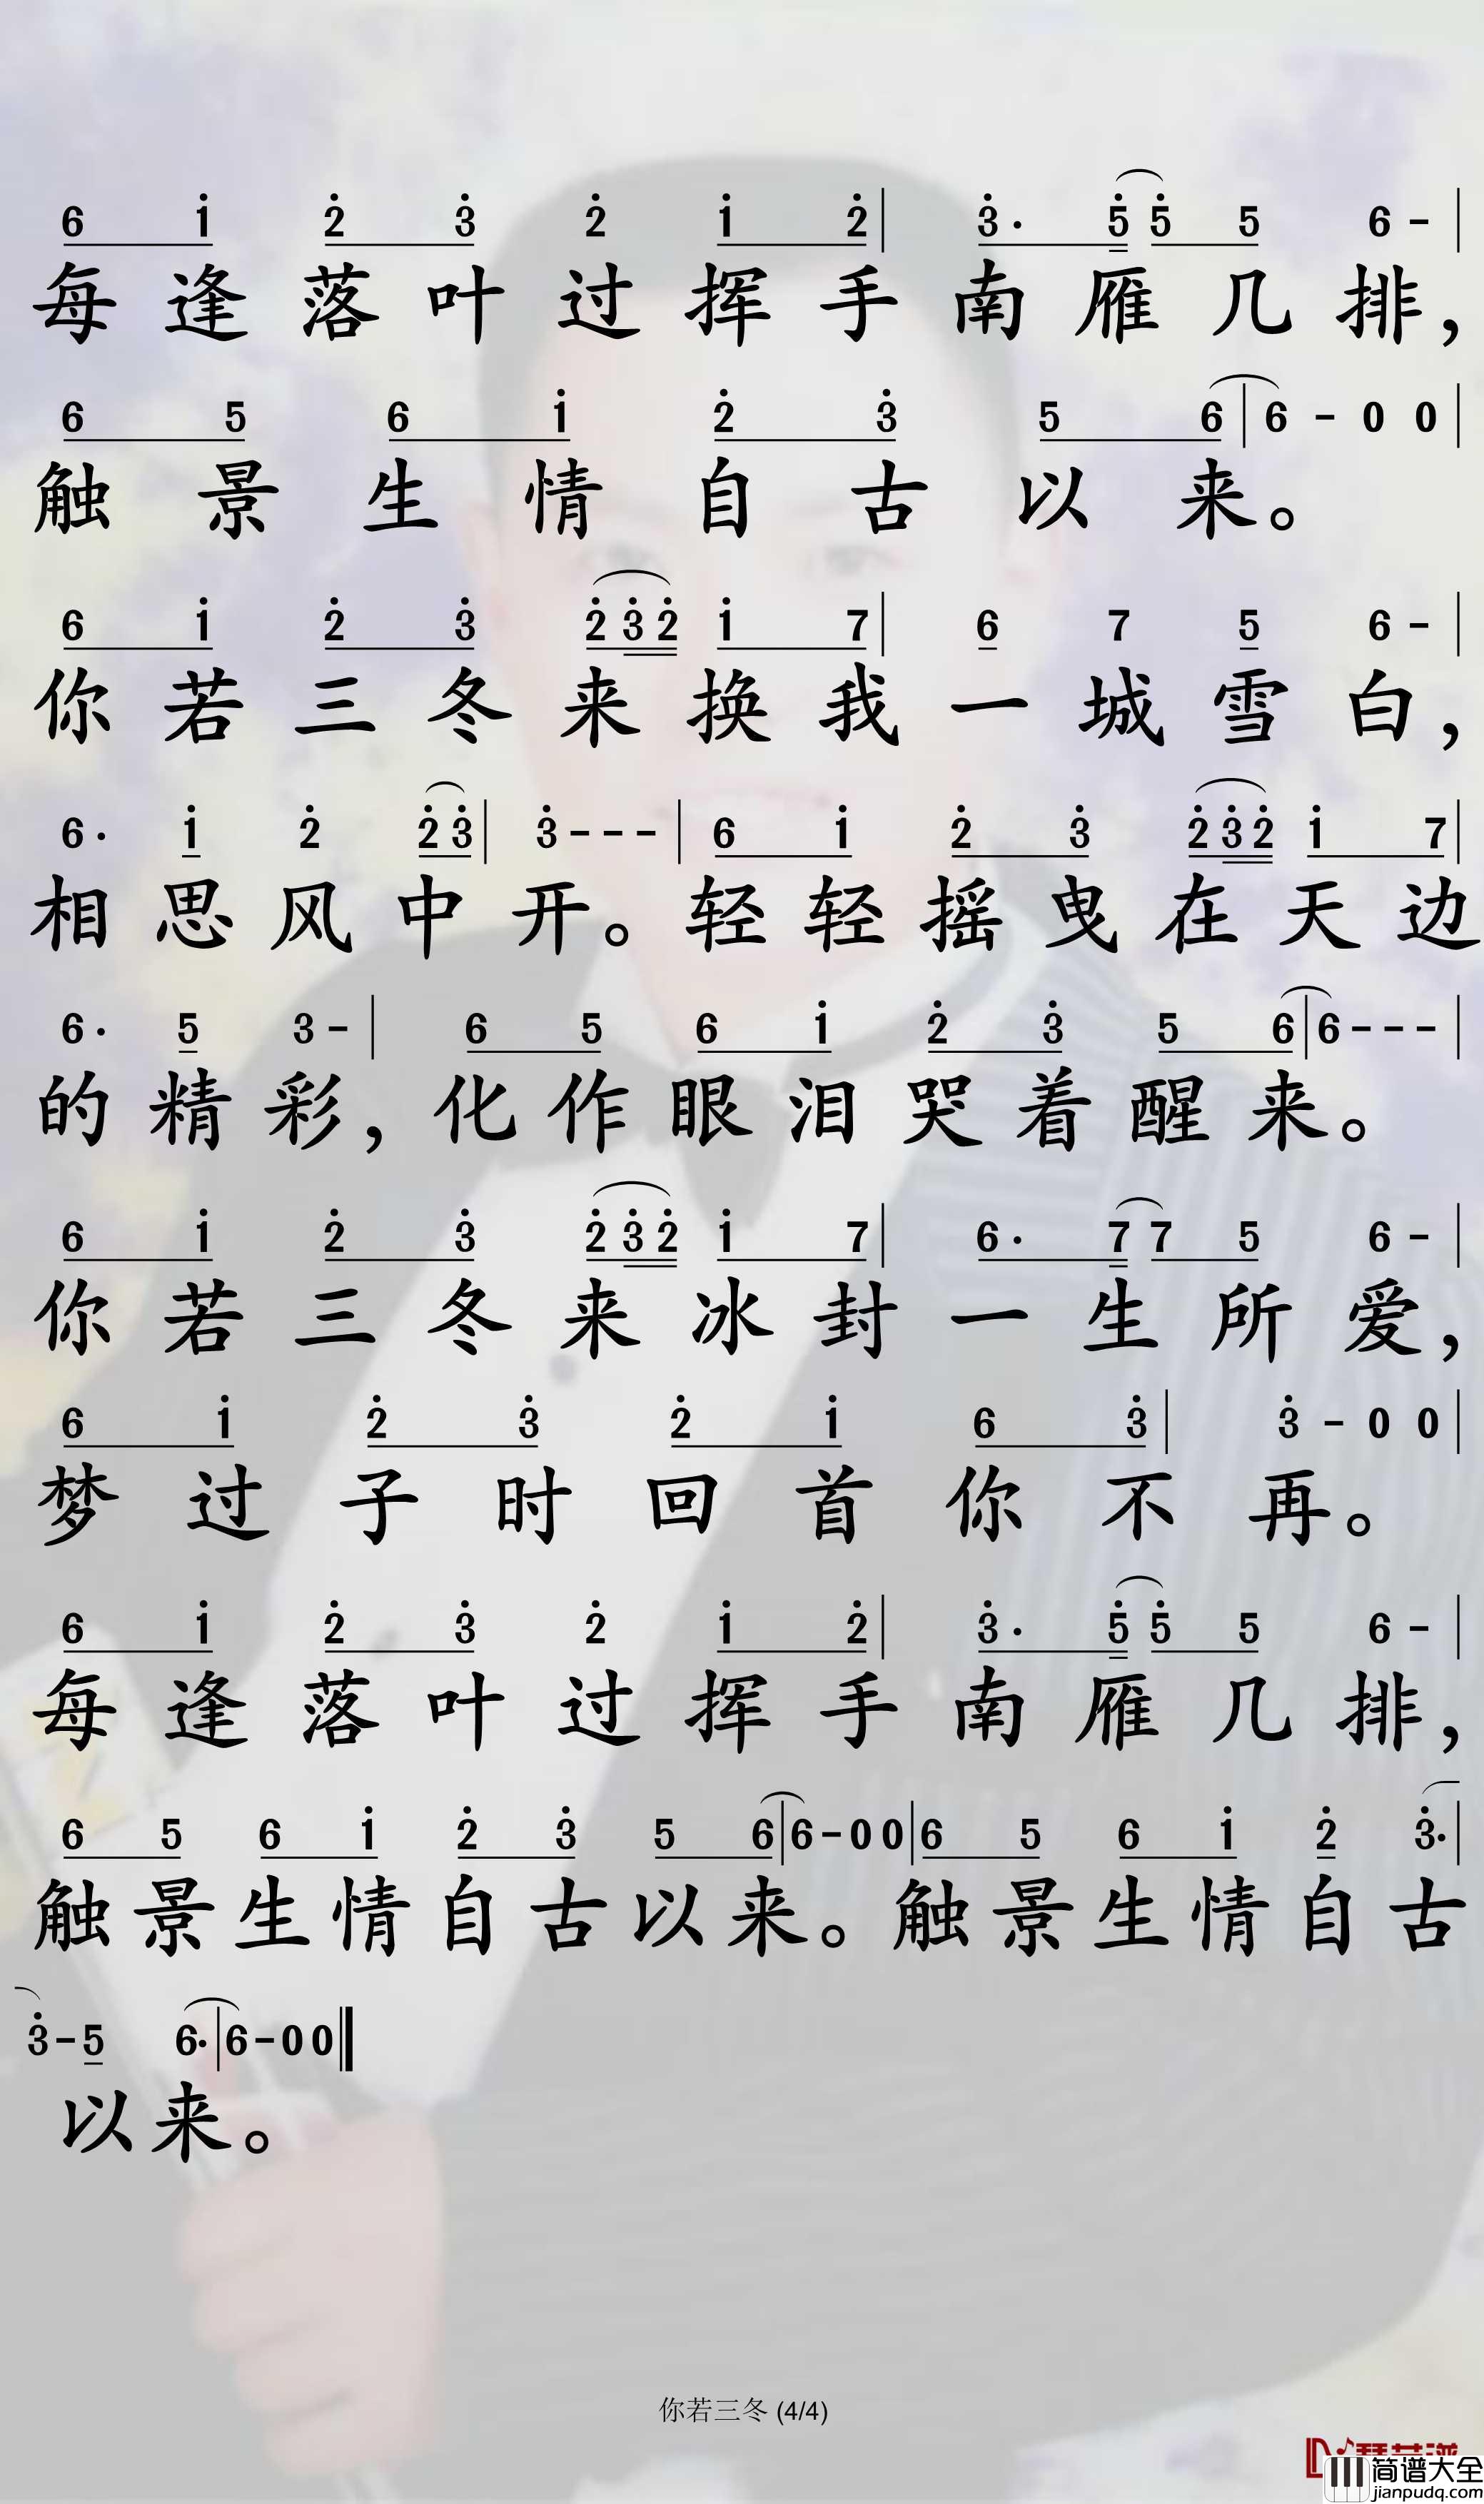 6 1 2 3 2 1 2 | 3 · 5 5 5 6 - |
每逢落叶过挥手南雁几排，
6 5 6 1 2 3 5 6 | 6 - 0 0 |
触景生情自古以来。
6 1 2 3 2 3 2 1 7 | 6 7 5 6 - |
你若三冬来换我一城雪白，
6 · 1 2 2 3 | 3 - - - | 6 1 2 3 2 3 2 1 7 |
相思风中开。轻轻摇曳在天边
6 · 5 3 - | 6 5 6 1 2 3 5 6 | 6 - - - |
的精彩，化作眼泪哭着醒来。
6 1 2 3 2 3 2 1 7 | 6 · 7 7 5 6 - |
你若三冬来冰封一生所爱，
6 1 2 3 2 1 6 3 | 3 - 0 0 |
梦过子时回首你不再。
6 1 2 3 2 1 2 | 3 · 5 5 5 6 - |
每逢落叶过挥手南雁几排，
6 5 6 1 2 3 5 6 | 6 - 0 0 | 6 5 6 1 2 3 · |
触景生情自古以来。触景生情自古
3 - 5 6 · | 6 - 0 0 ||
以来。
你若三冬 (4/4)
简谱大全
jianpudq.com